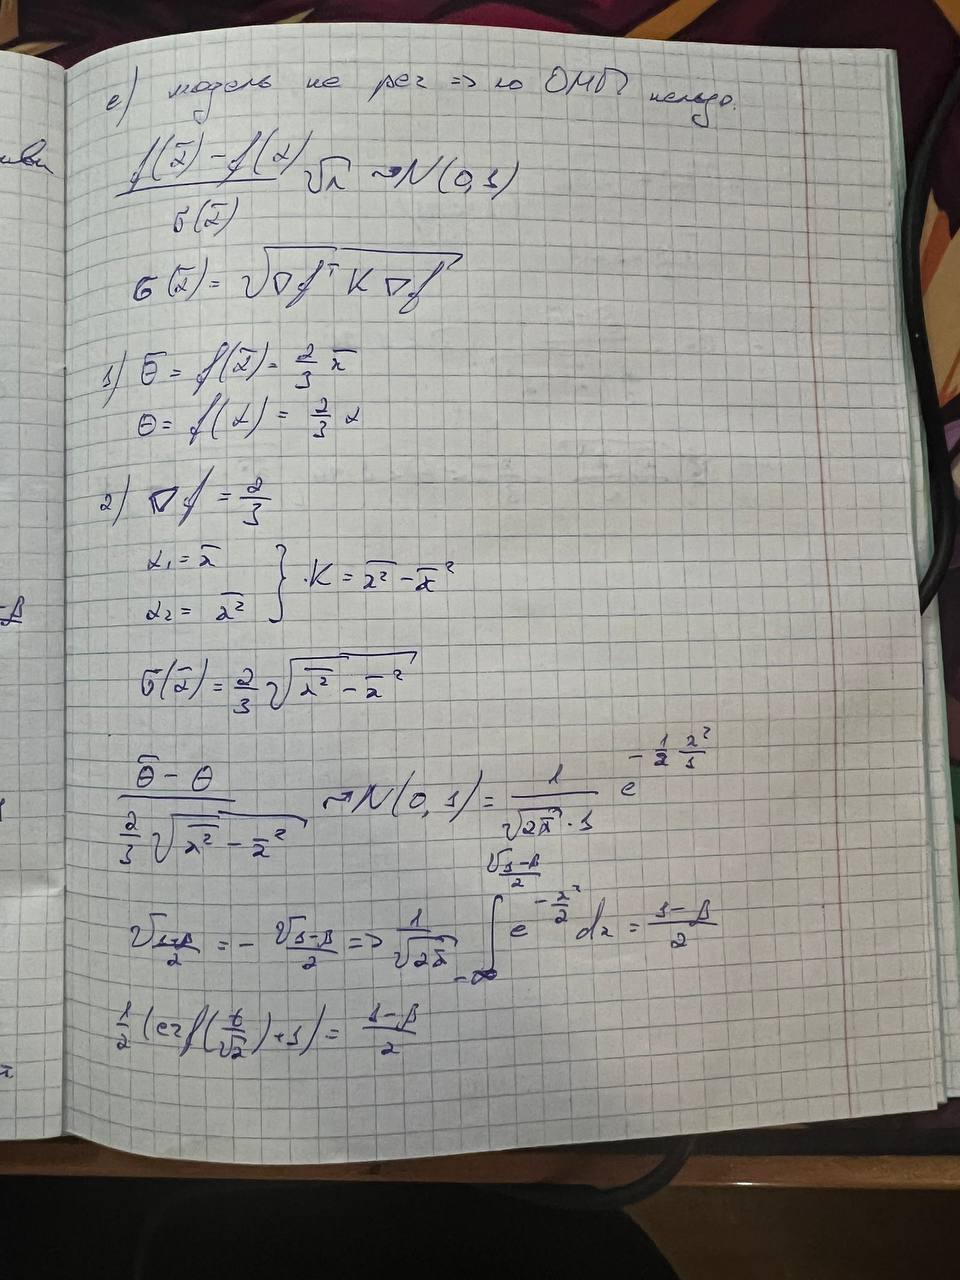 e) модель не рег => по ОМП нельзя.
(f(α̅) - f(α)) / σ(α̅) √n → N(0,1)
σ(α̅) = √(∇fᵀ K ∇f)
1) θ̅ = f(α̅) = 2/3 x̅
θ = f(α) = 2/3 α
2) ∇f = 2/3
α₁ = x̅
α₂ = x̅²̅ } K = x̅²̅ - x̅²
σ(α̅) = 2/3 √(x̅²̅ - x̅²)
(θ̅ - θ) / (2/3 √(x̅²̅ - x̅²)) → N(0,1) = 1/(√(2π)·1) e^(-1/2 x²/1)
=- => 1/√(2π) ∫ e^(-x²/2) dx = (1-β)/2
1/2 (erf(t/√2)+1) = (1-β)/2